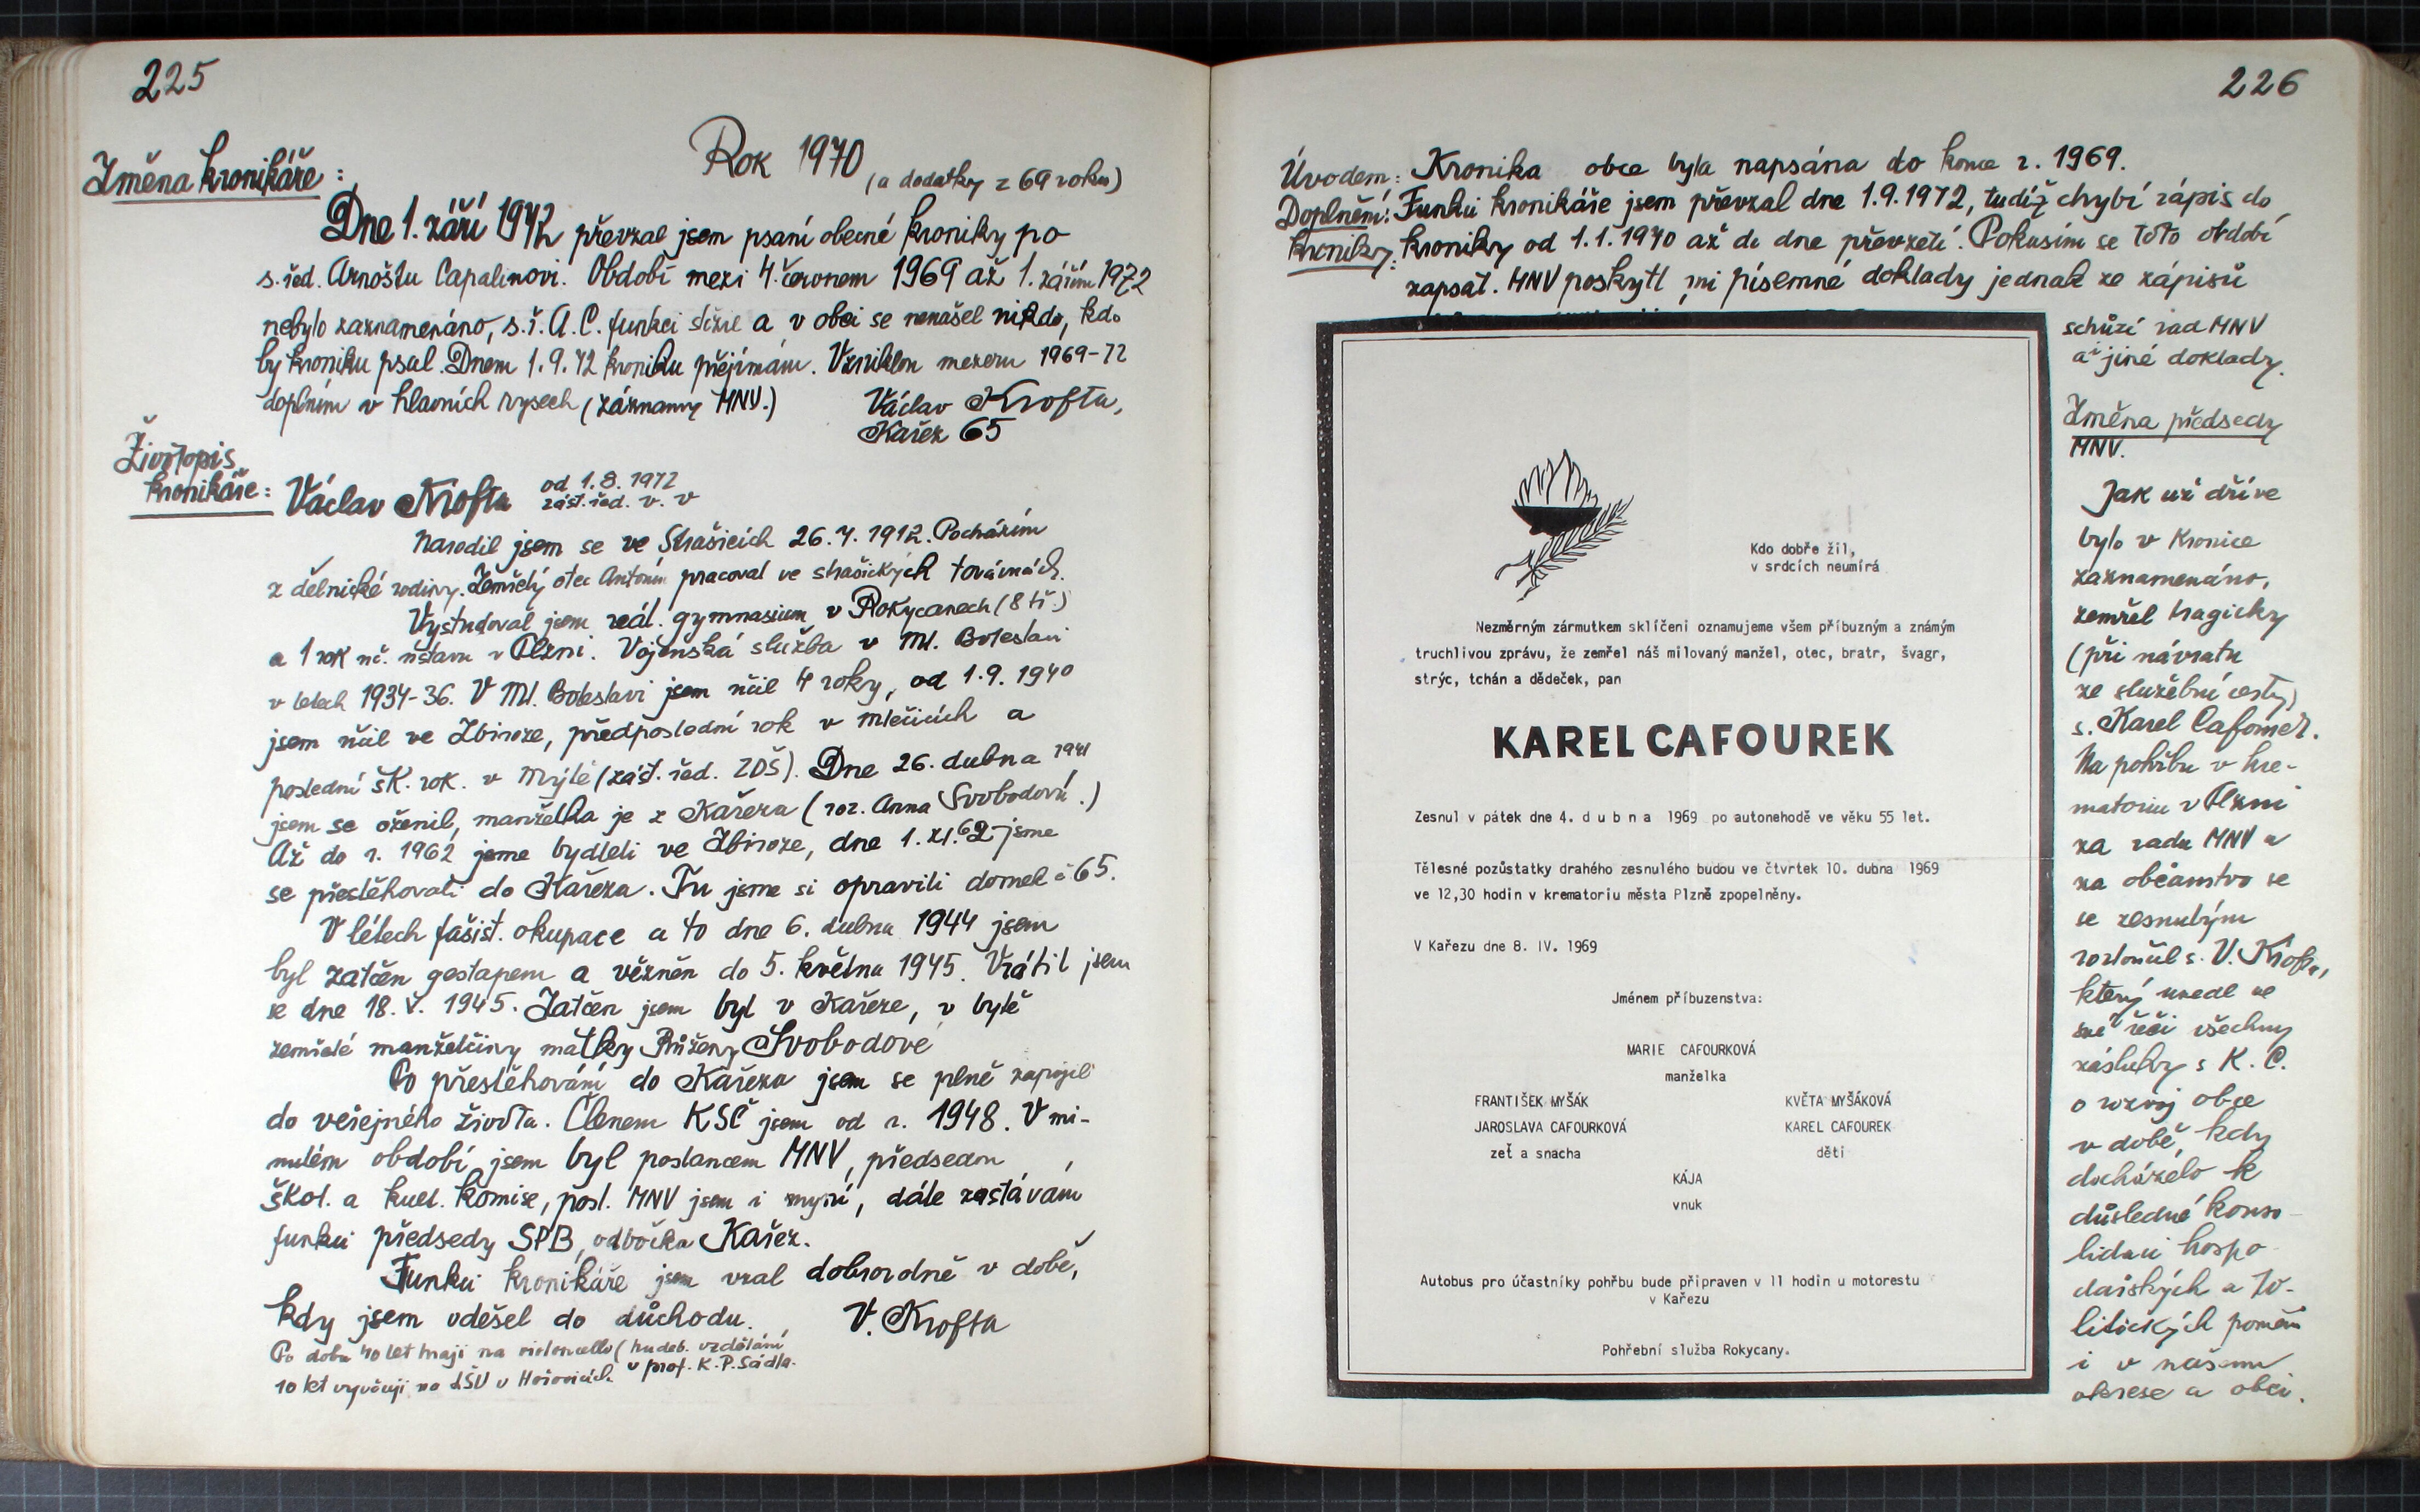 225
Rok 1970
(a dodatky z 69 roku)
Změna kronikáře:
Dne 1. září 1972 převzal jsem psaní obecné kroniky po
s. řed. Arnoštu Capalinovi. Období mezi 4. červnem 1969 až 1. zářím 1972
nebylo zaznamenáno, s. ř. A. C. funkci složil a v obci se nenašel nikdo, kdo
by kroniku psal. Dnem 1. 9. 72 kroniku přejímám. Vzniklou mezeru 1969-72
doplním v hlavních rysech (záznamy MNV.)
Václav Krofta,
Kařez 65
Životopis
kronikáře: Václav Krofta od 1. 8. 1972
zást. řed. v. v
Narodil jsem se ve Strašicích 26. 7. 1912. Pocházím
z dělnické rodiny. Zemřelý otec Antonín pracoval ve strašických továrnách.
Vystudoval jsem reál. gymnasium v Rokycanech (8 tř.)
a 1 rok uč. ústavu v Plzni. Vojenská služba v Ml. Boleslavi
v letech 1934-36. V Ml. Boleslavi jsem učil 4 roky, od 1. 9. 1940
jsem učil ve Zbiroze, předposlední rok v Mlečicích a
poslední šk. rok. v Mýtě (zást. řed. ZDŠ). Dne 26. dubna 1941
jsem se oženil, manželka je z Kařeza (roz. Anna Svobodová.)
Až do r. 1962 jsme bydleli ve Zbiroze, dne 1. XI. 62 jsme
se přestěhovali do Kařeza. Tu jsme si opravili domek č 65.
V létech fašist. okupace a to dne 6. dubna 1944 jsem
byl zatčen gestapem a vězněn do 5. května 1945. Vrátil jsem
se dne 18. V. 1945. Zatčen jsem byl v Kařeze, v bytě
zemřelé manželčiny matky Růženy Svobodové
Po přestěhování do Kařeza jsem se plně zapojil
do veřejného života. Členem KSČ jsem od r. 1948. V mi-
nulém období jsem byl poslancem MNV, předsedou
škol. a kult. komise, posl. MNV jsem i nyní, dále zastávám
funkci předsedy SPB, odbočka Kařez.
Funkci kronikáře jsem vzal dobrovolně v době,
kdy jsem odešel do důchodu. V. Krofta
Po dobu 40 let hraji na violoncello (hudeb. vzdělání
10 let vyučuji na LŠU v Hořovicích u prof. K. P. Sádla.
226
Úvodem: Kronika obce byla napsána do konce r. 1969.
Doplnění: Funkci kronikáře jsem převzal dne 1. 9. 1972, tudíž chybí zápis do
kroniky: kroniky od 1. 1. 1970 až do dne převzetí. Pokusím se toto období
zapsat. MNV poskytl mi písemné doklady jednak ze zápisů
schůzí rad MNV
a jiné doklady.
Změna předsedy
MNV.
Jak už dříve
bylo v Kronice
zaznamenáno,
zemřel tragicky
(při návratu
ze služební cesty)
s. Karel Cafourek.
Na pohřbu v kre-
matoriu v Plzni
za radu MNV a
za občanstvo se
se zesnulým
rozloučil s. V. Krofta,
který uvedl ve
své řeči všechny
zásluhy s K. C.
o rozvoj obce
v době, kdy
docházelo k
důsledné konso-
lidaci hospo-
dářských a po-
litických poměrů
i v našem
okrese a obci.
Kdo dobře žil,
v srdcích neumírá
Nezměrným zármutkem sklíčeni oznamujeme všem příbuzným a známým
truchlivou zprávu, že zemřel náš milovaný manžel, otec, bratr, švagr,
strýc, tchán a dědeček, pan
KAREL CAFOUREK
Zesnul v pátek dne 4. dubna 1969 po autonehodě ve věku 55 let.
Tělesné pozůstatky drahého zesnulého budou ve čtvrtek 10. dubna 1969
ve 12,30 hodin v krematoriu města Plzně zpopelněny.
V Kařezu dne 8. IV. 1969
Jménem příbuzenstva:
MARIE CAFOURKOVÁ
manželka
FRANTIŠEK MYŠÁK KVĚTA MYŠÁKOVÁ
JAROSLAVA CAFOURKOVÁ KAREL CAFOUREK
zeť a snacha děti
KÁJA
vnuk
Autobus pro účastníky pohřbu bude připraven v 11 hodin u motorestu
v Kařezu
Pohřební služba Rokycany.